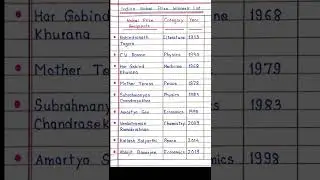 Indian Nobel Prize Winners List
Nobel Prize Recipients Category Year
Rabindranath Tagore Literature 1913
C.V. Raman Physics 1930
Har Gobind Khurana Medicine 1968
Mother Teresa Peace 1979
Subrahmanyan Chandrasekhar Physics 1983
Amartya Sen Economics 1998
Venkatraman Ramakrishnan Chemistry 2009
Kailash Satyarthi Peace 2014
Abhijit Banerjee Economics 2019
Har Gobind
Khurana
1968
Mother Teres
1979
Subrahmany
Chandrasek
1983
Amartya S
1998